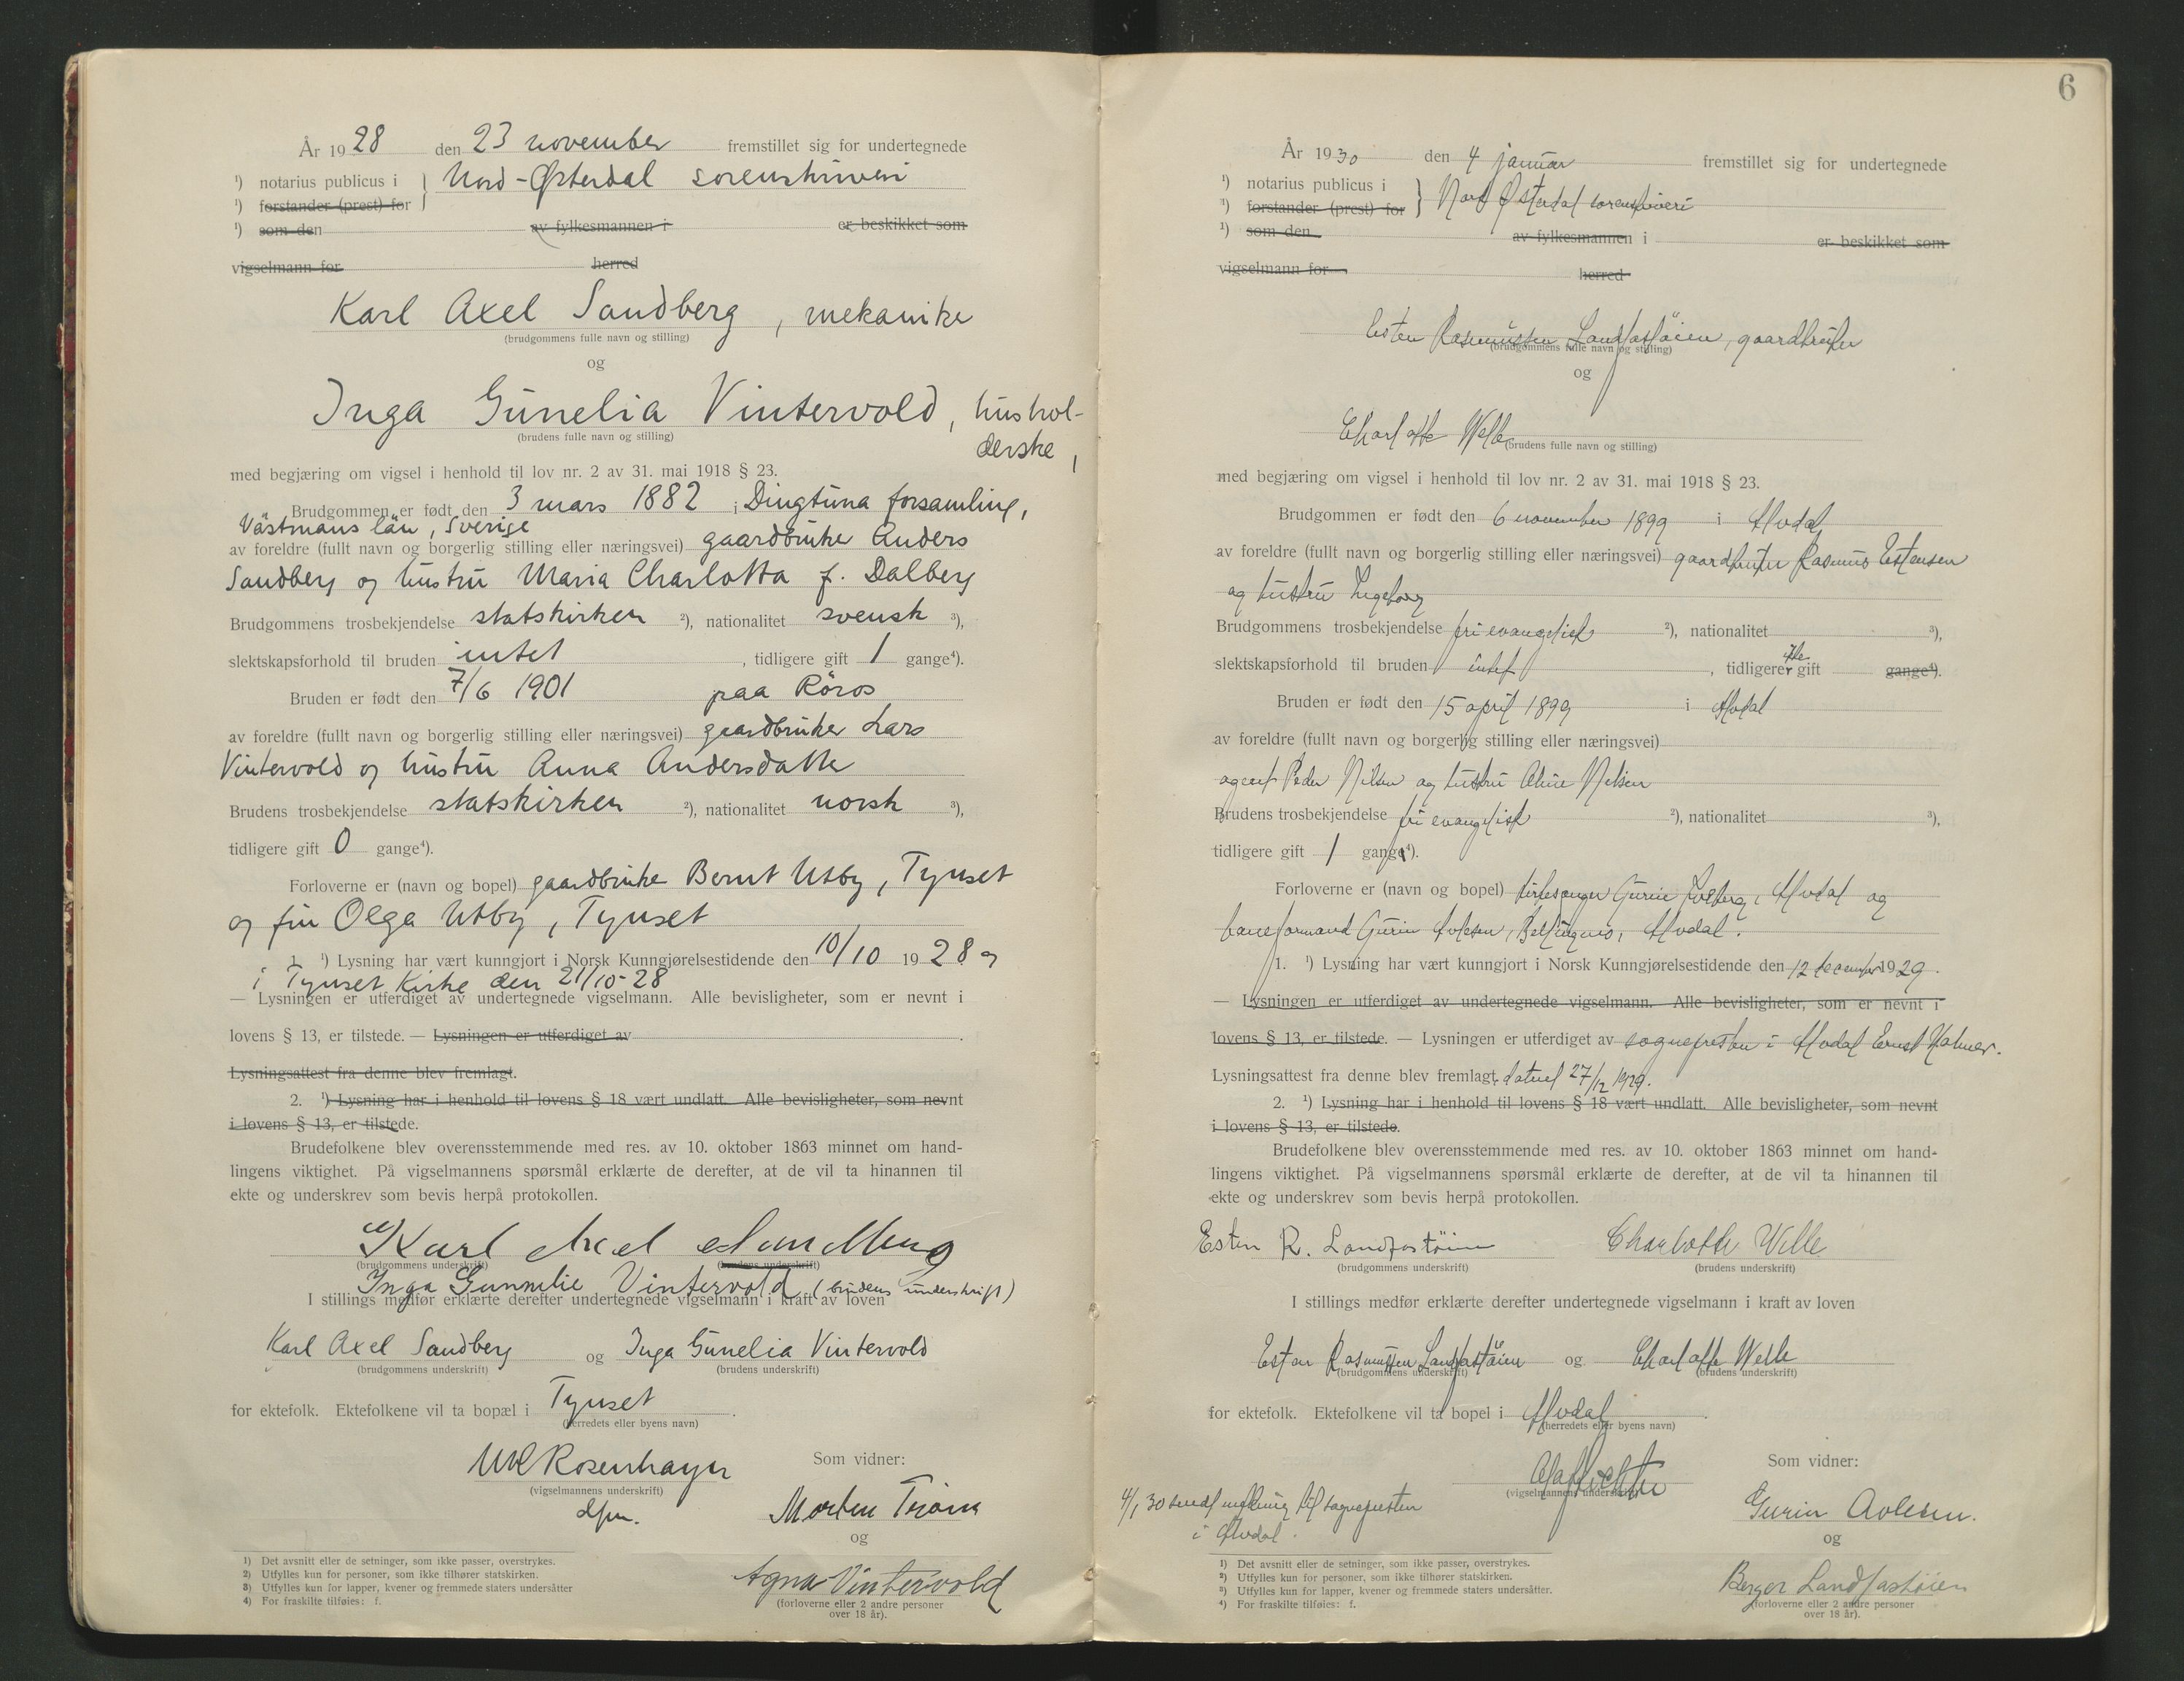 År 1928 den 23 november fremstillet sig for undertegnede
¹) notarius publicus i } Nord-Østerdal sorenskriveri
¹) forstander (prest) for
¹) som den av fylkesmannen i er beskikket som
vigselmann for herred
Karl Axel Sandberg, mekaniker
(brudgommens fulle navn og stilling)
og
Inga Gunelia Vintervold, hushol-
(brudens fulle navn og stilling)
derske,
med begjæring om vigsel i henhold til lov nr. 2 av 31. mai 1918 § 23.
Brudgommen er født den 3 mars 1882 i Dingtuna forsamling,
Västmans län, Sverige
av foreldre (fullt navn og borgerlig stilling eller næringsvei) gaardbruker Anders
Sandberg og hustru Maria Charlotta f. Dalberg
Brudgommens trosbekjendelse statskirken ²), nationalitet svensk ³),
slektskapsforhold til bruden intet, tidligere gift 1 gange⁴).
Bruden er født den 7/6 1901 paa Röros
av foreldre (fullt navn og borgerlig stilling eller næringsvei) gaardbruker Lars
Vintervold og hustru Anna Andersdatter
Brudens trosbekjendelse statskirken ²), nationalitet norsk ³),
tidligere gift 0 gange⁴).
Forloverne er (navn og bopel) gaardbruker Bernt Utby, Tynset
og fru Olga Utby, Tynset
1. ¹) Lysning har vært kunngjort i Norsk Kunngjørelsestidende den 10/10 1928 og
i Tynset Kirke den 21/10-28
— Lysningen er utferdiget av undertegnede vigselmann. Alle bevisligheter, som er nevnt i
lovens § 13, er tilstede. — Lysningen er utferdiget av .
Lysningsattest fra denne blev fremlagt.
2. ¹) Lysning har i henhold til lovens § 18 vært undlatt. Alle bevisligheter, som nevnt
i lovens § 13, er tilstede.
Brudefolkene blev overensstemmende med res. av 10. oktober 1863 minnet om hand-
lingens viktighet. På vigselmannens spørsmål erklærte de derefter, at de vil ta hinannen til
ekte og underskrev som bevis herpå protokollen.
Karl Axel Sandberg
(brudgommens underskrift) (brudens underskrift)
Inga Gunnelie Vintervold (brudens underskrift)
I stillings medfør erklærte derefter undertegnede vigselmann i kraft av loven
Karl Axel Sandberg og Inga Gunelia Vintervold
(brudgommens underskrift) (brudens underskrift)
for ektefolk. Ektefolkene vil ta bopæl i Tynset.
(herredets eller byens navn)
Rosenhayn Som vidner:
(vigselmannens underskrift)
dfm. Morten Trøna
og
Agna Vintervold
(forloverne eller 2 andre personer
over 18 år).
1) Det avsnitt eller de setninger, som ikke passer, overstrykes.
2) Utfylles kun for personer, som ikke tilhører statskirken.
3) Utfylles kun for lapper, kvener og fremmede staters undersåtter
4) For fraskilte tilføies: f.
6
År 1930 den 4 januar fremstillet sig for undertegnede
¹) notarius publicus i } Nord Østerdal sorenskriveri
¹) forstander (prest) for
¹) som den av fylkesmannen i er beskikket som
vigselmann for herred
Esten Rasmussen Landfastøien, gaardbruker
(brudgommens fulle navn og stilling)
og
Charlotte Welle
(brudens fulle navn og stilling)
med begjæring om vigsel i henhold til lov nr. 2 av 31. mai 1918 § 23.
Brudgommen er født den 6 november 1899 i Alvdal
av foreldre (fullt navn og borgerlig stilling eller næringsvei) gaardbruker Rasmus Estensen
og hustru Ingeborg
Brudgommens trosbekjendelse fri evangelisk ²), nationalitet ³),
slektskapsforhold til bruden intet, tidligere ikke gift gange⁴).
Bruden er født den 15 april 1899 i Alvdal
av foreldre (fullt navn og borgerlig stilling eller næringsvei)
agent Peder Nilsen og hustru Nelsen
Brudens trosbekjendelse fri evangelisk ²), nationalitet ³),
tidligere gift 1 gange⁴).
Forloverne er (navn og bopel) kirkesanger Alvdal og
baneformand Gurin Avlesen, Alvdal.
1. ¹) Lysning har vært kunngjort i Norsk Kunngjørelsestidende den 12 december 1929.
— Lysningen er utferdiget av undertegnede vigselmann. Alle bevisligheter, som er nevnt i
lovens § 13, er tilstede. — Lysningen er utferdiget av sognepresten i Alvdal Ernst Halmer.
Lysningsattest fra denne blev fremlagt. datert 27/12 1929.
2. ¹) Lysning har i henhold til lovens § 18 vært undlatt. Alle bevisligheter, som nevnt
i lovens § 13, er tilstede.
Brudefolkene blev overensstemmende med res. av 10. oktober 1863 minnet om hand-
lingens viktighet. På vigselmannens spørsmål erklærte de derefter, at de vil ta hinannen til
ekte og underskrev som bevis herpå protokollen.
Esten R. Landfastöien Charlotte Welle
(brudgommens underskrift) (brudens underskrift)
I stillings medfør erklærte derefter undertegnede vigselmann i kraft av loven
Esten Rasmussen Landfastöien og Charlotte Welle
(brudgommens underskrift) (brudens underskrift)
for ektefolk. Ektefolkene vil ta bopel i Alvdal.
(herredets eller byens navn)
Olaf Som vidner:
(vigselmannens underskrift)
4/1 30 sendt melding til sognepresten
i Alvdal.
Gurin Avlesen.
og
Berger Landfastøien
(forloverne eller 2 andre personer
over 18 år).
1) Det avsnitt eller de setninger, som ikke passer, overstrykes.
2) Utfylles kun for personer, som ikke tilhører statskirken.
3) Utfylles kun for lapper, kvener og fremmede staters undersåtter.
4) For fraskilte tilføies: f.